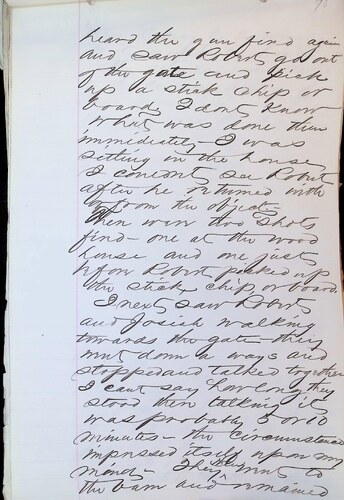 heard the gun fired again
and saw Robert go out
of the gate and pick
up a stick chip or
board, I dont know
what was done then
immediately – I was
sitting in the house
I could not see Robert
after he returned with
the objects
There were two shots
fired – one at the wood
house and one just
before Robert picked up
the stick, chip or board.
I next saw Robert
and Josiah walking
towards the gate – they
went down a ways and
stopped and talked together
I cant say how long they
stood there talking it
was probably 5 or 10
minutes – the circumstance
impressed itself upon my
mind – They went to
the barn and remained